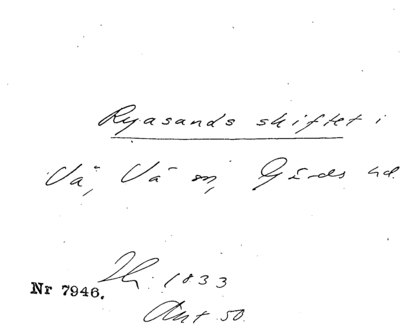 Ryasands skiftet i
Vä, Vä sn, Gärds hd.
1833
Nr 7946.
Ant 50.